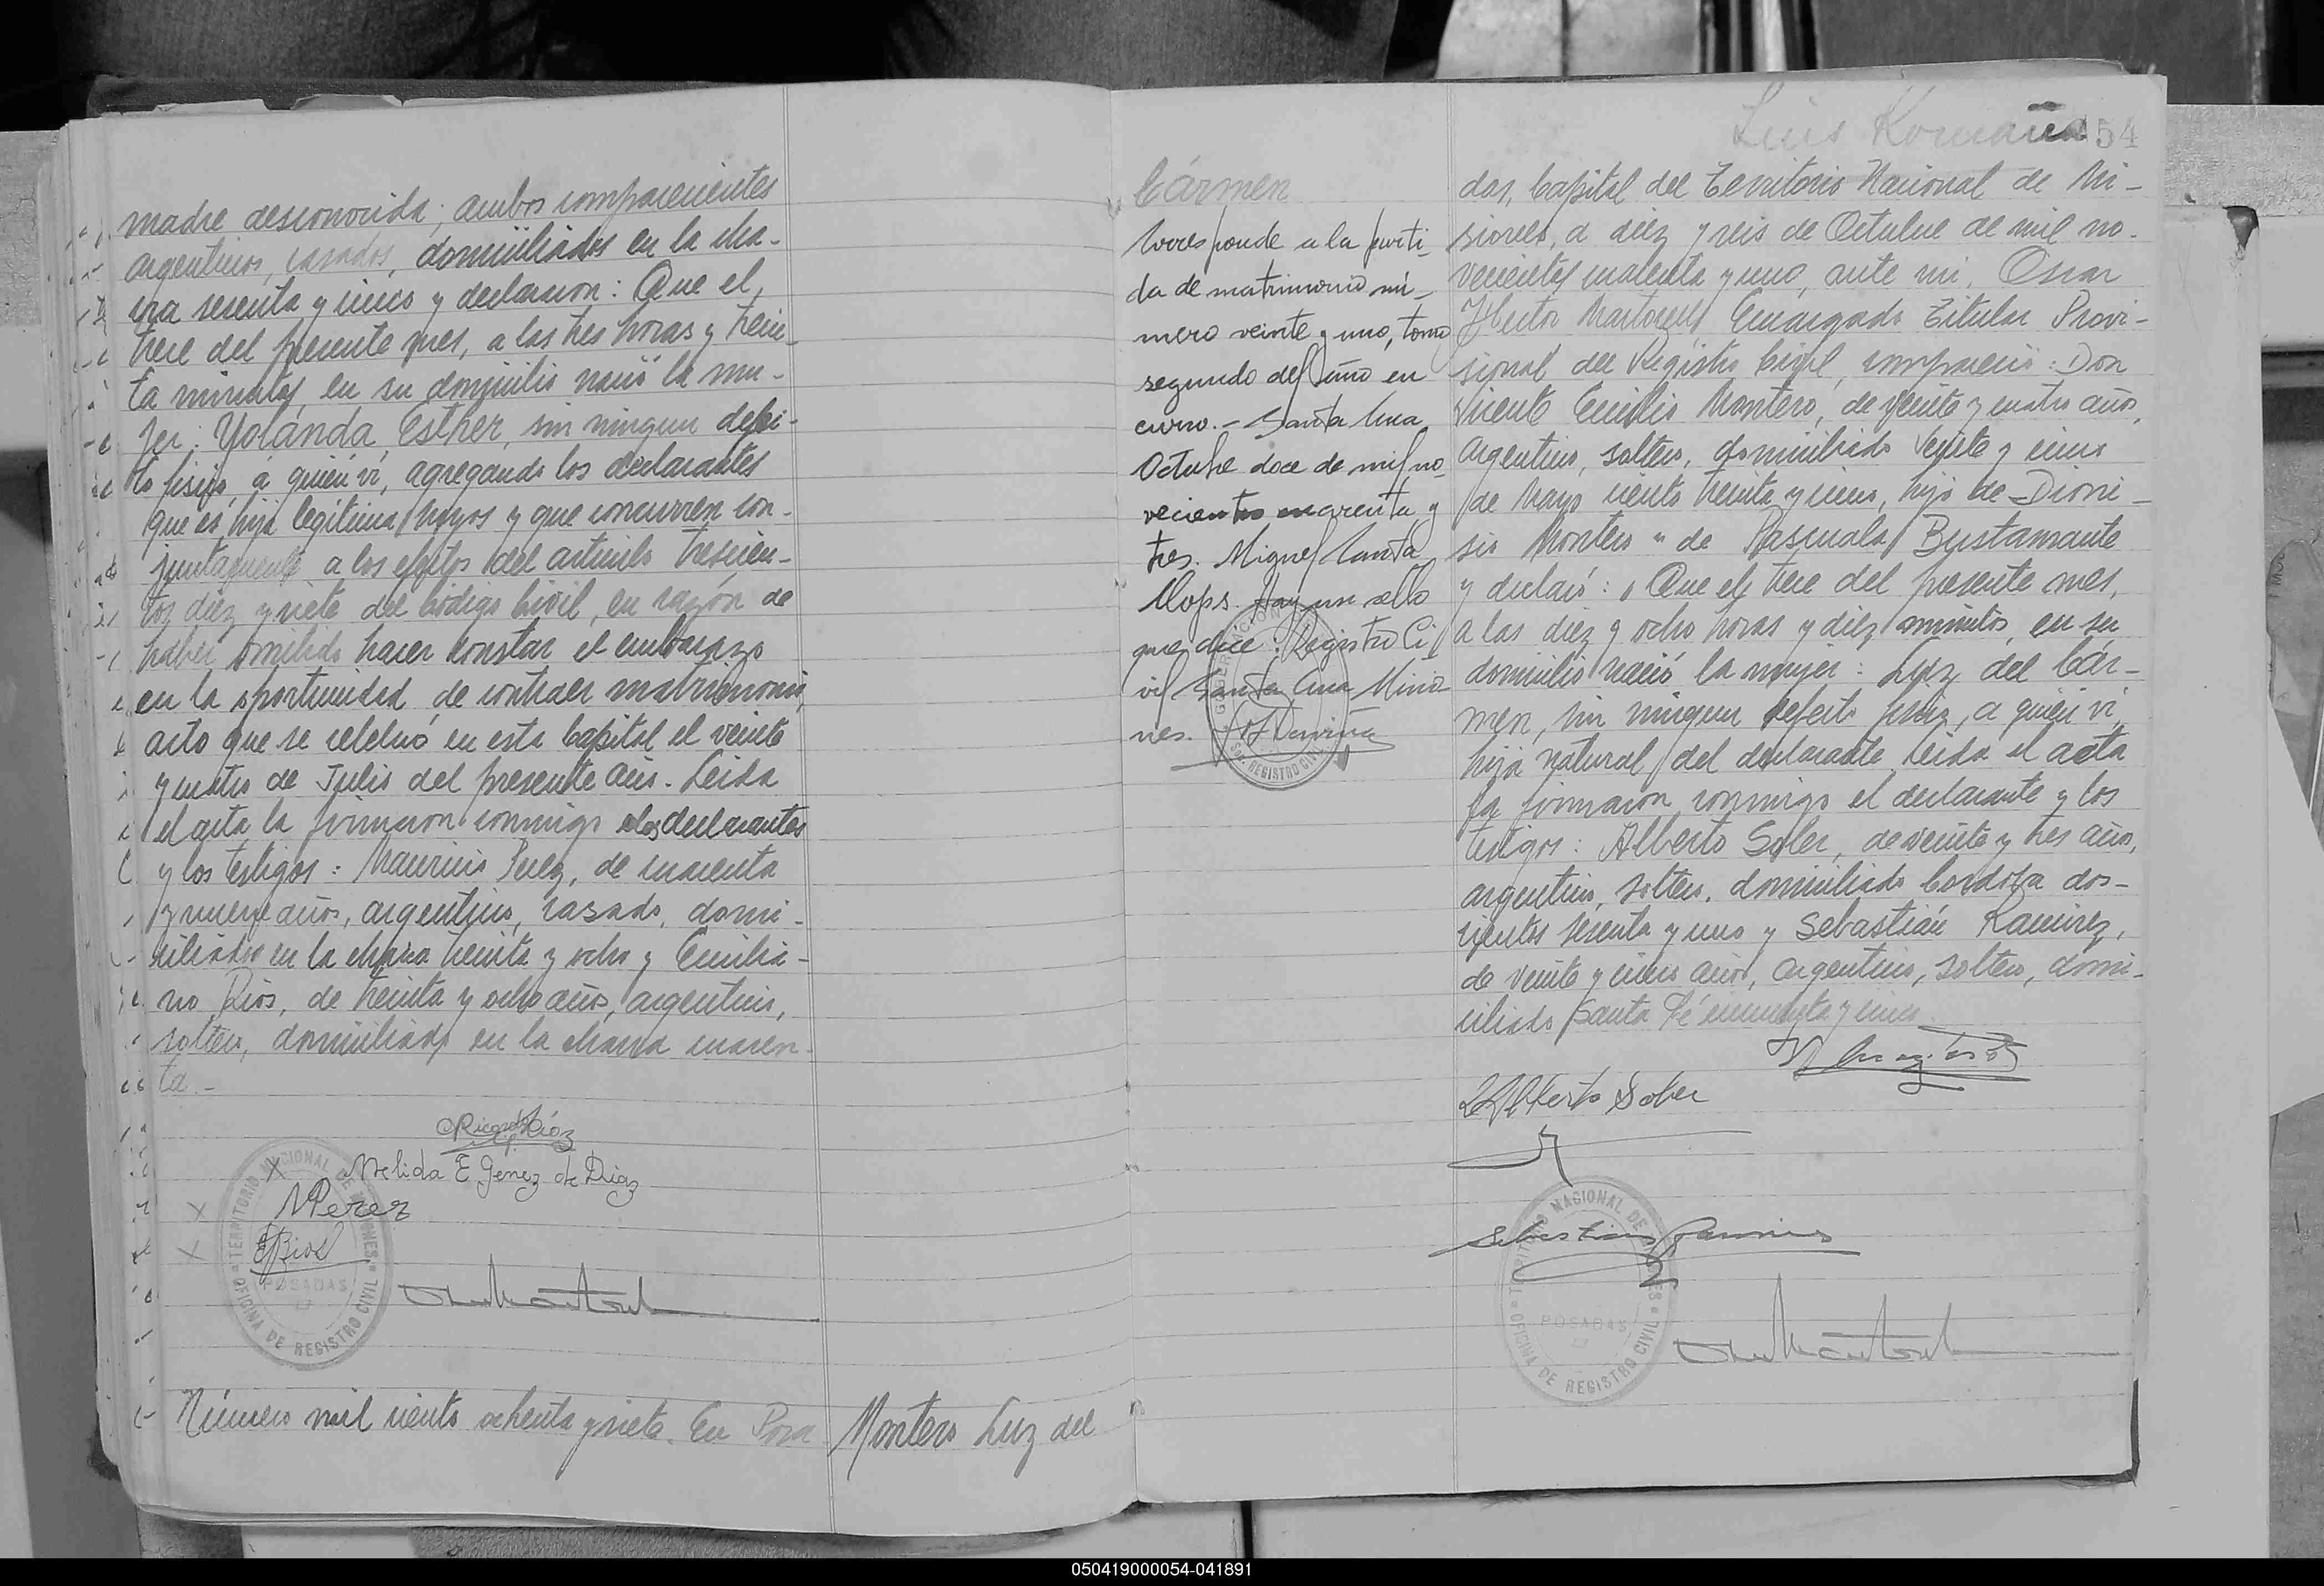 madre desconocida; ambos comparecientes
argentinos, casados, domiciliados en la cha-
cra sesenta y cinco y declararon: Que el
trece del presente mes, a las tres horas y trein-
ta minutos, en su domicilio nació la mu-
jer: Yolanda Esther, sin ningun defec-
to fisico, a quien vi, agregando los declarantes
que es hija legitima y que concurren con-
juntamente a los efectos del articulo trescien-
tos diez y siete del Código Civil, en razón de
haber omitido hacer constar el embarazo
en la oportunidad de contraer matrimonio,
acto que se celebró en esta Capital el veinte
y cuatro de Julio del presente año. Leida
el acta la firmaron conmigo los declarantes
y los testigos: Mauricio Perez, de cuarenta
y nueve años, argentino, casado, domi-
ciliado en la chacra treinta y ocho y Emilia-
no Rios, de treinta y ocho años, argentino,
soltero, domiciliado en la chacra cuaren-
ta.-
Ricardo Dióz
X Nelida E Genez de Diaz
X MPerez
X ERios
TERRITORIO NACIONAL DE MISIONES
POSADAS
OFICINA DE REGISTRO CIVIL
Número mil ciento ochenta y siete. En Posa
Montero Luz del
Luis Romaña
54
Cármen
Corresponde a la parti-
da de matrimonio nú-
mero veinte y uno, tomo
segundo del año en
curso.- Santa Ana
Octubre doce de mil no-
vecientos cuarenta y
tres. Miguel Canta
llops. Hay un sello
que dice: Registro Ci
vil Santa Ana Misio
nes.
REGISTRO CIVIL
das, Capital del Territorio Nacional de Mi-
siones, a diez y seis de Octubre de mil no-
vecientos cuarenta y uno, ante mi, Oscar
Hector Martorell, Encargado Titular Provi-
sional del Registro Civil, compareció: Don
Vicente Emilio Montero, de veinte y cuatro años,
argentino, soltero, domiciliado Veinte y cinco
de Mayo ciento treinta y cinco, hijo de Dioni-
sio Montero y de Pascuala Bustamante
y declaró: Que el trece del presente mes,
a las diez y ocho horas y diez minutos, en su
domicilio nació la mujer: Luz del Cár-
men, sin ningun defecto fisico, a quien vi,
hija natural del declarante. Leida el acta
la firmaron conmigo el declarante y los
testigos: Alberto Soler, de veinte y tres años,
argentino, soltero, domiciliado Cordoba dos-
cientos sesenta y uno y Sebastián Ramirez,
de veinte y cinco años, argentino, soltero, domi-
ciliado Santa Fé cincuenta y cinco.
Alberto Soler
Sebastian Ramirez
TERRITORIO NACIONAL DE MISIONES
POSADAS
OFICINA DE REGISTRO CIVIL
050419000054-041891